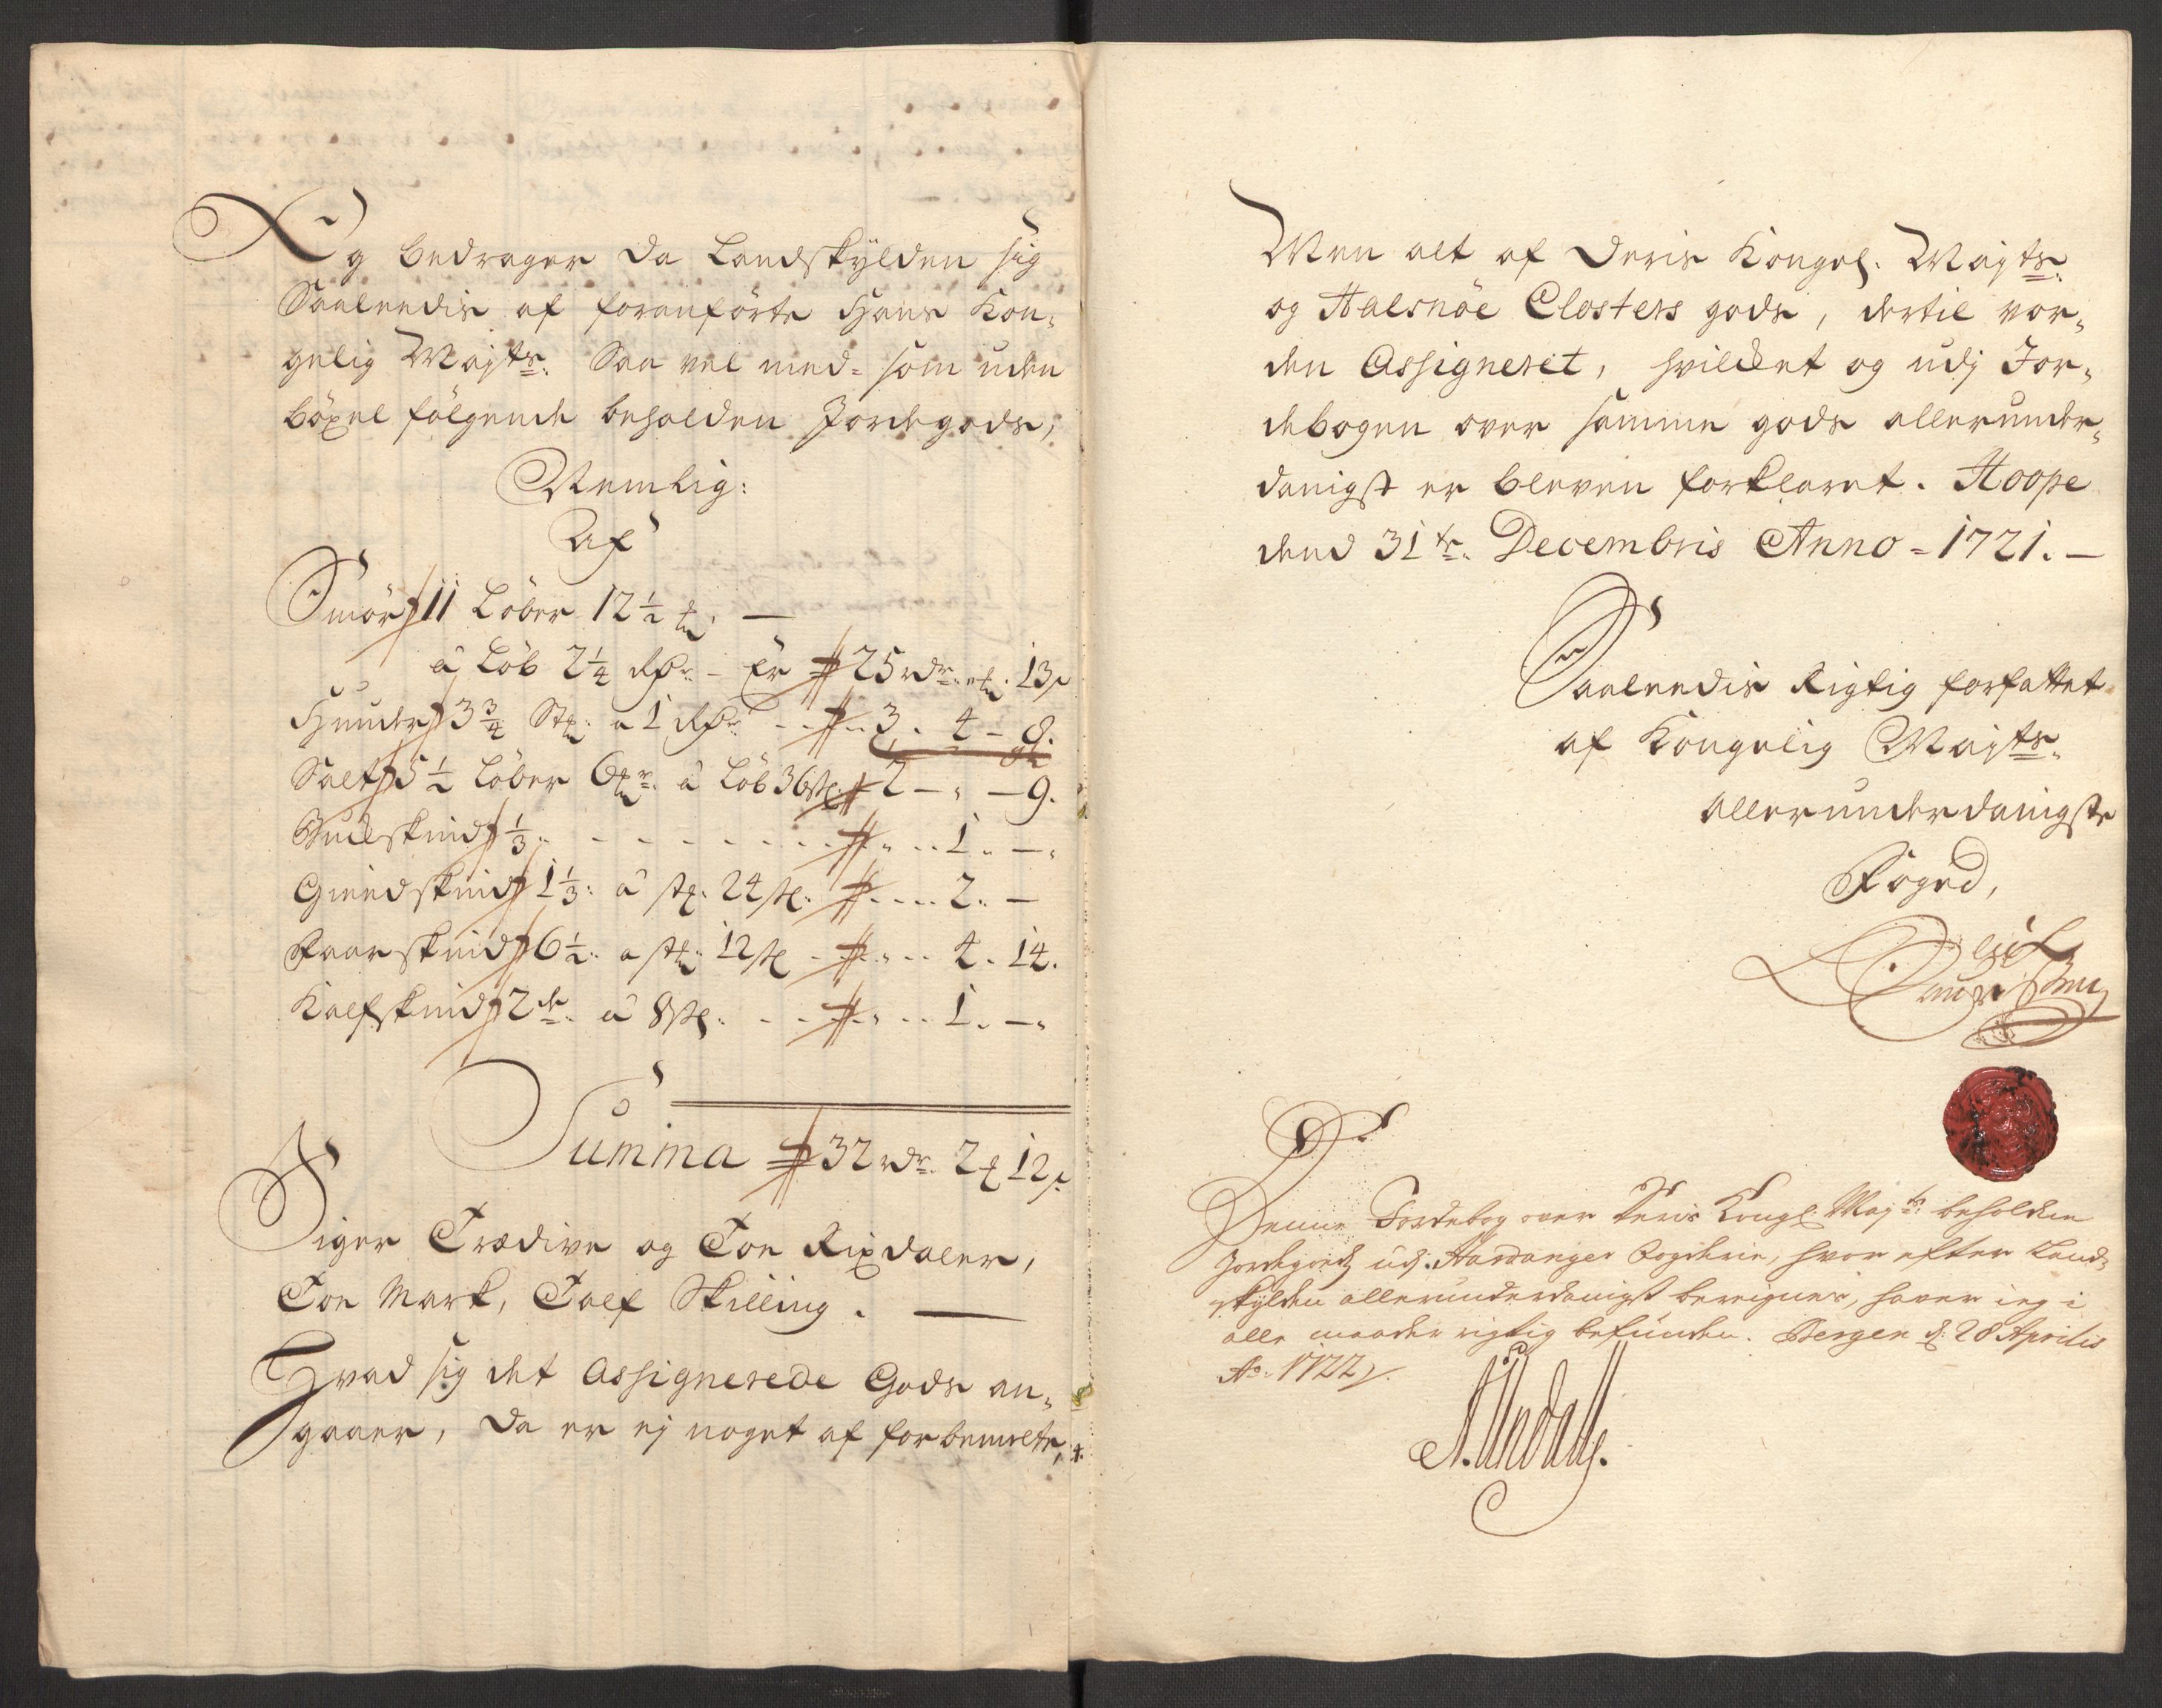 Og bedrager da Landskÿlden sig
Saaleedis af foranförte Hans Kon-
gelig Majts: Saa vel med- som uden
böxel fölgende beholden Jordegods,
Nemlig:
Af
Smör 11 Löber 12½
â Löb 2¼ Rdr. - Er 25 rdr. 13 s
Huuder 3¾ Stk: a 1 Rdr. 3. 4 - 8.
Salt 5½ Löber 6 â Löb 36 sk. 2 - " - 9.
Bukskind ⅓: " 1. -
Gieedskind 1⅓: â stk: 24 sk. 2. -
Faarskind 6½: a stk: 12 sk " 4. 14.
Kalfskind 2de. â 8 sk: " 1. -
Summa 32 rdr. 2 12 s
Siger Trædive og Toe Rixdaler,
Toe Mark, Tolf Skilling. —
Hvad sig det Assignerede Gods an-
gaaer, da er ej noget af forbemelte,
Men alt af Deris Kongel: Majts:
og Halsnöe Closters gods, dertil vor-
den Assigneret, hvilket og udj Jor-
debogen over samme gods allerunder-
danigst er bleven forklaret. Hoope
dend 31te. Decembris Anno - 1721. —
Saaleedis Rigtig forfattet
af Kongelig Majts.
allerunderdanigste
Foged,
Denne Jordebog over Deris Kongl: Majts: beholden
Jordegods udj Hardanger Fogderie, hvor efter Land-
skÿlden allerunderdanigst beregnes, haver ieg i
alle maader rigtig befunden. Bergen d: 28 Aprilis
Ao. 1722.